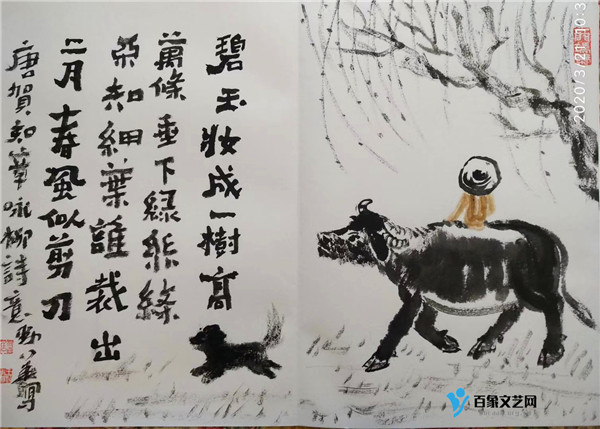 碧玉妝成一樹高
萬條垂下綠絲絛
不知細葉誰裁出
二月春風似剪刀
唐賀知章咏柳詩意
寫
2020/3/21 10:3
百象文艺网